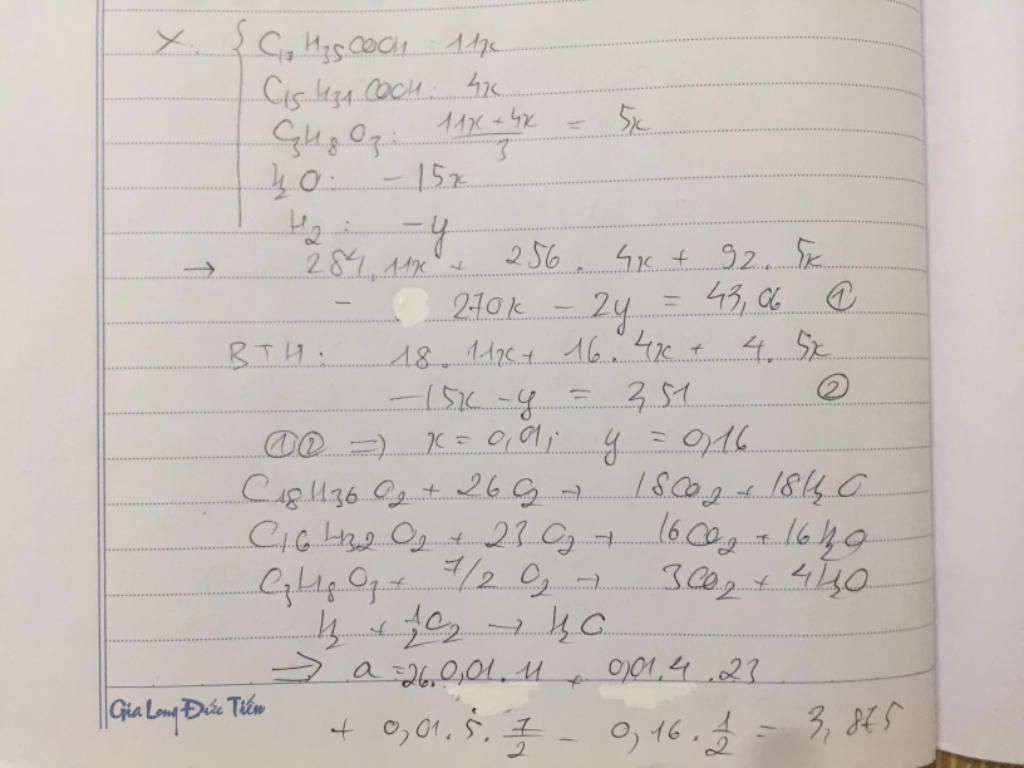 X. { C17H35COOH : 11x
C15H31COOH : 4x
C3H8O3 : (11x + 4x)/3 = 5x
H2O : - 15x
H2 : - y
→ 284.11x + 256.4x + 92.5x
- 270x - 2y = 43,06 ①
BTH : 18.11x + 16.4x + 4.5x
- 15x - y = 2,51 ②
①② ⇒ x = 0,01; y = 0,16
C18H36O2 + 26O2 → 18CO2 + 18H2O
C16H32O2 + 23O2 → 16CO2 + 16H2O
C3H8O3 + 7/2 O2 → 3CO2 + 4H2O
H2 + 1/2 O2 → H2O
⇒ a = 26.0,01.11 + 0,01.4.23
Gia Long Đức Tiến
+ 0,01.5.7/2 - 0,16.1/2 = 3,875